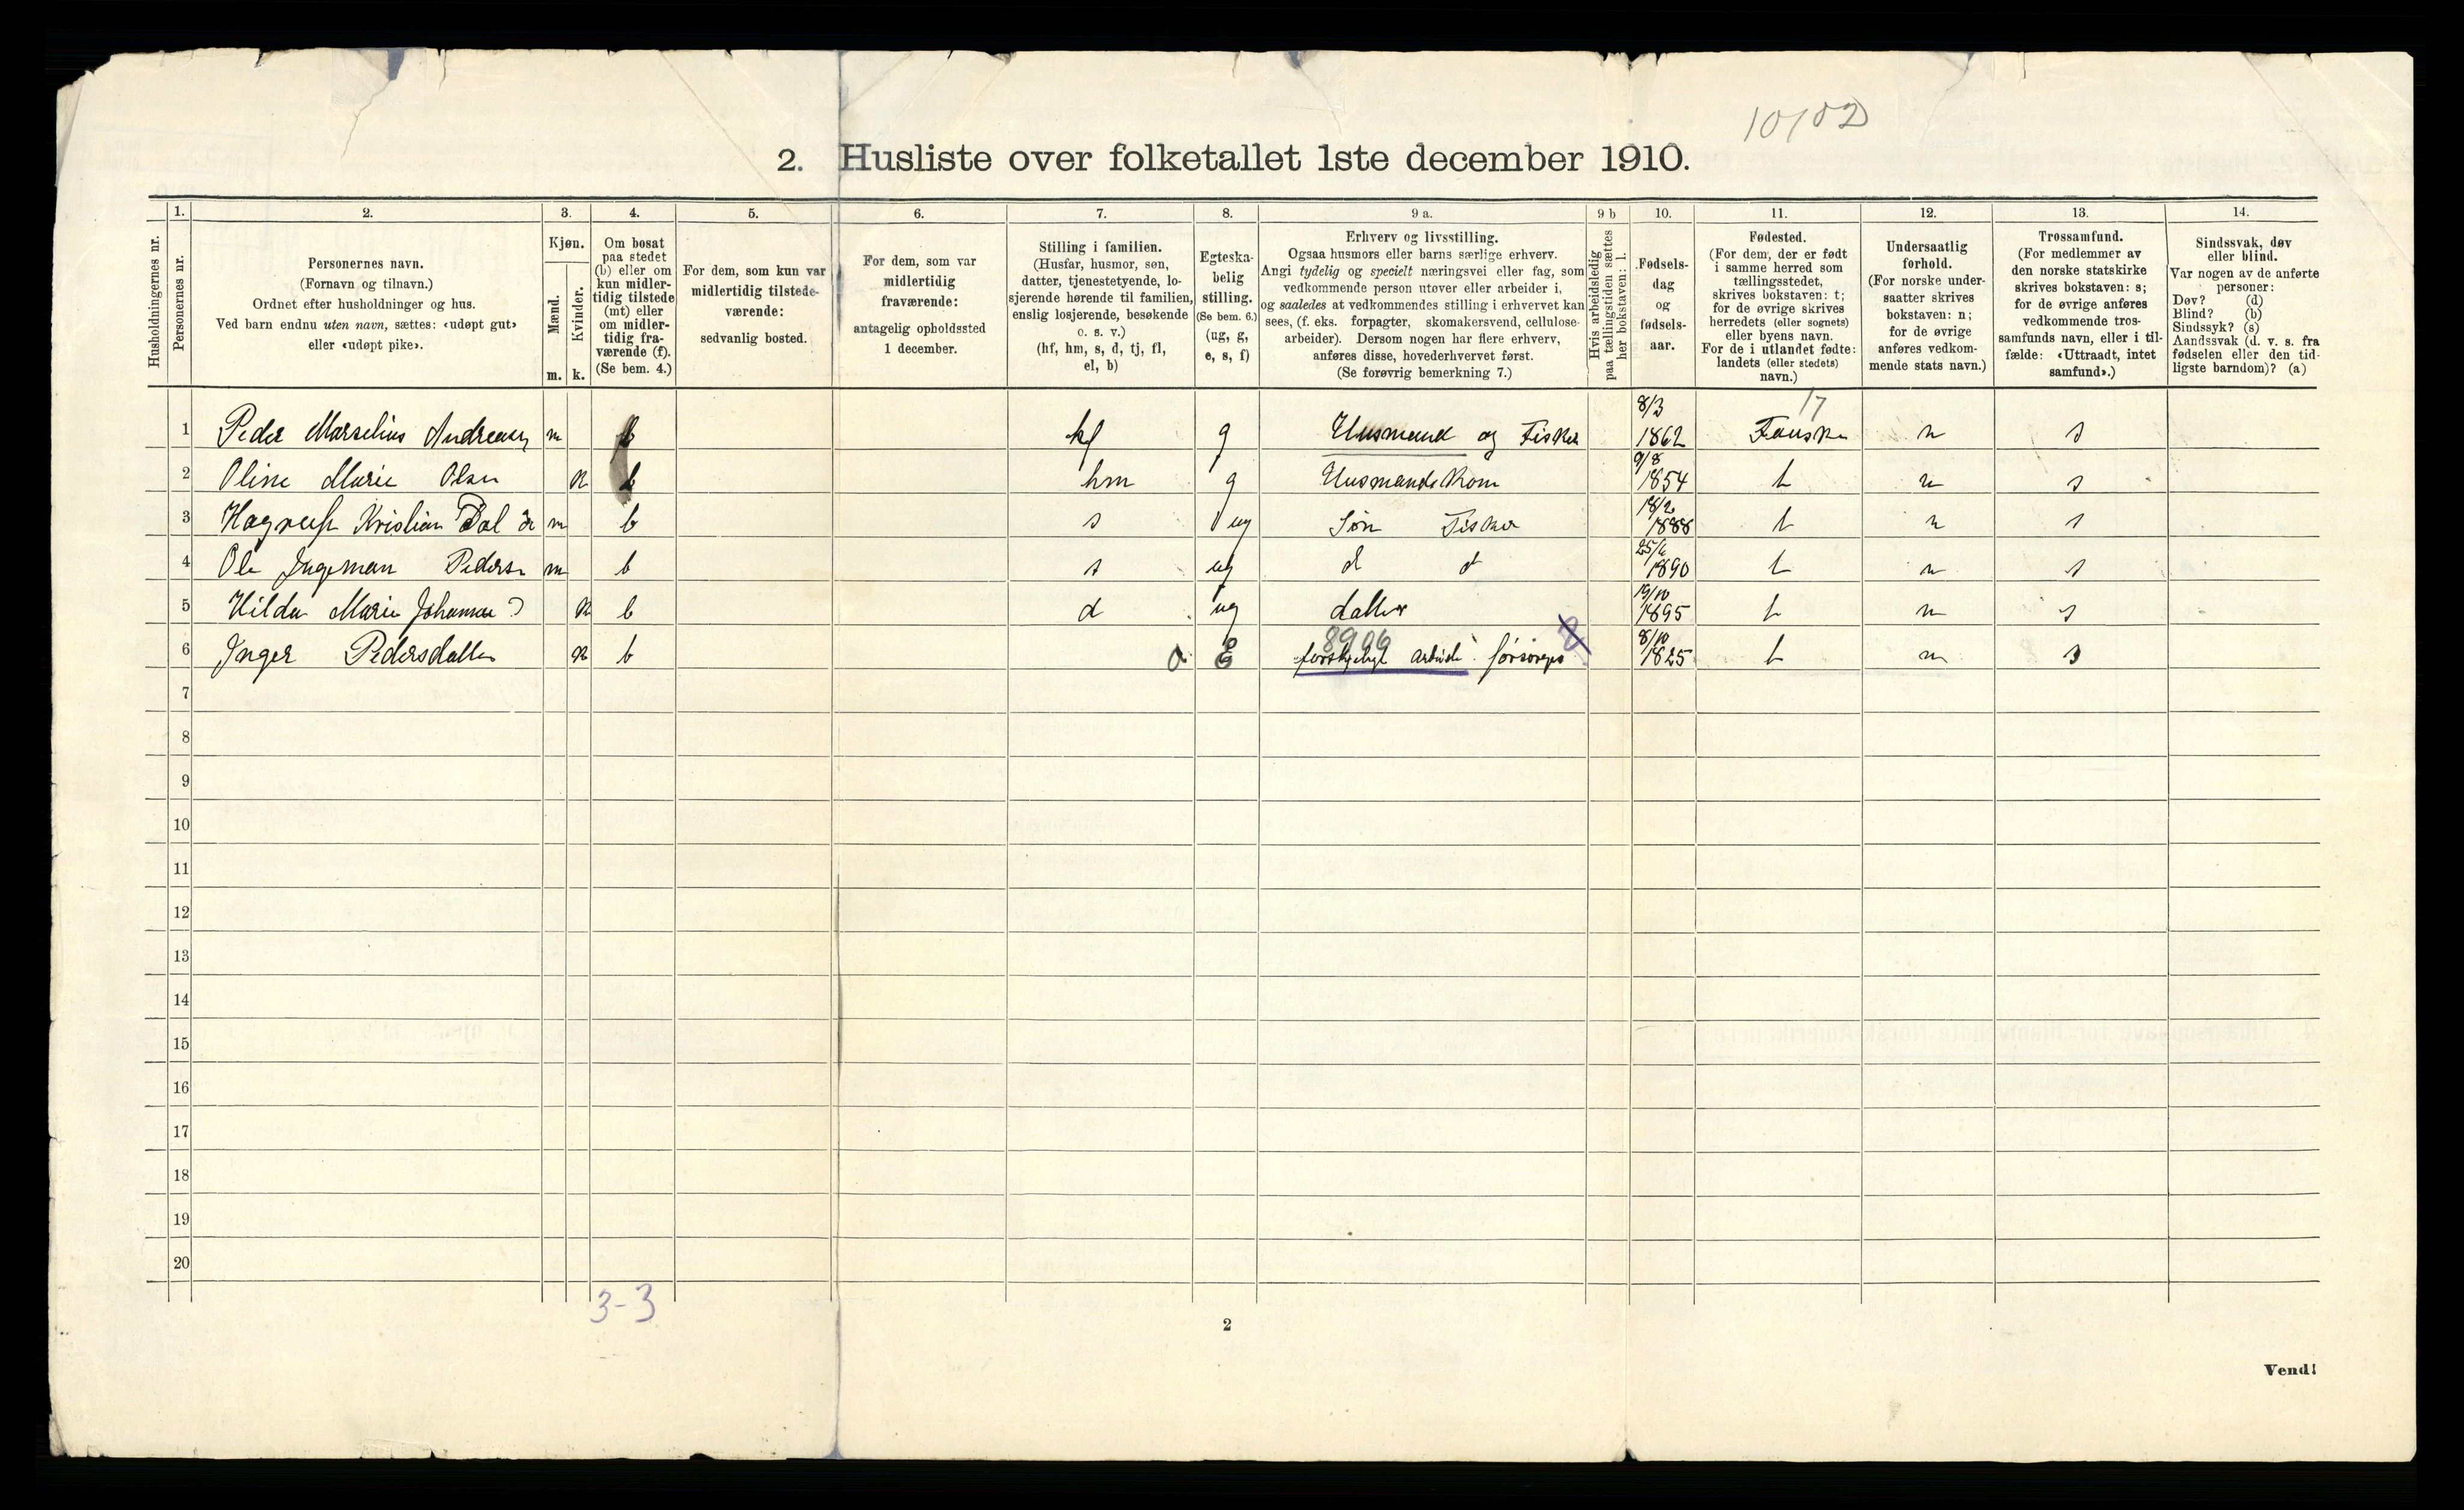 10102
2. Husliste over folketallet 1ste december 1910.
Husholdningernes nr.
1.
Personernes nr.
2.
Personernes navn.
(Fornavn og tilnavn.)
Ordnet efter husholdninger og hus.
Ved barn endnu uten navn, sættes: «udøpt gut»
eller «udøpt pike».
3.
Kjøn.
Mænd.
m.
Kvinder.
k.
4.
Om bosat
paa stedet
(b) eller om
kun midler-
tidig tilstede
(mt) eller
om midler-
tidig fra-
værende (f).
(Se bem. 4.)
5.
For dem, som kun var
midlertidig tilstede-
værende:
sedvanlig bosted.
6.
For dem, som var
midlertidig
fraværende:
antagelig opholdssted
1 december.
7.
Stilling i familien.
(Husfar, husmor, søn,
datter, tjenestetyende, lo-
sjerende hørende til familien,
enslig losjerende, besøkende
o. s. v.)
(hf, hm, s, d, tj, fl,
el, b)
8.
Egteska-
belig
stilling.
(Se bem. 6.)
(ug, g,
e, s, f)
9 a.
Erhverv og livsstilling.
Ogsaa husmors eller barns særlige erhverv.
Angi tydelig og specielt næringsvei eller fag, som
vedkommende person utøver eller arbeider i,
og saaledes at vedkommendes stilling i erhvervet kan
sees, (f. eks. forpagter, skomakersvend, cellulose-
arbeider). Dersom nogen har flere erhverv,
anføres disse, hovederhvervet først.
(Se forøvrig bemerkning 7.)
9 b
Hvis arbeidsledig
paa tællingstiden sættes
her bokstaven: l.
10.
Fødsels-
dag
og
fødsels-
aar.
11.
Fødested.
(For dem, der er født
i samme herred som
tællingsstedet,
skrives bokstaven: t;
for de øvrige skrives
herredets (eller sognets)
eller byens navn.
For de i utlandet fødte:
landets (eller stedets)
navn.)
12.
Undersaatlig
forhold.
(For norske under-
saatter skrives
bokstaven: n;
for de øvrige
anføres vedkom-
mende stats navn.)
13.
Trossamfund.
(For medlemmer av
den norske statskirke
skrives bokstaven: s;
for de øvrige anføres
vedkommende tros-
samfunds navn, eller i til-
fælde: «Uttraadt, intet
samfund».)
14.
Sindssvak, døv
eller blind.
Var nogen av de anførte
personer:
Døv? (d)
Blind? (b)
Sindssyk? (s)
Aandssvak (d. v. s. fra
fødselen eller den tid-
ligste barndom)? (a)
1 Peder Marselius Andreasen m b hf g Husmand og Fisker 8/3 1862 17 Fauske n s
2 Oline Marie Olsen k b hm g Husmandskone 9/8 1854 t n s
3 Kristian m b s ug Søn Fisker 18/2 1888 t n s
4 Ole Ingeman Peders m b s ug d d 25/6 1890 t n s
5 Hilda Marie Johanna k b d ug datter 19/10 1895 t n s
6 Inger Pedersdatter k b E 8906 forskjeligt arbeide forsørges 8/10 1825 t n s
7
8
9
10
11
12
13
14
15
16
17
18
19
20
3-3
2
Vend!